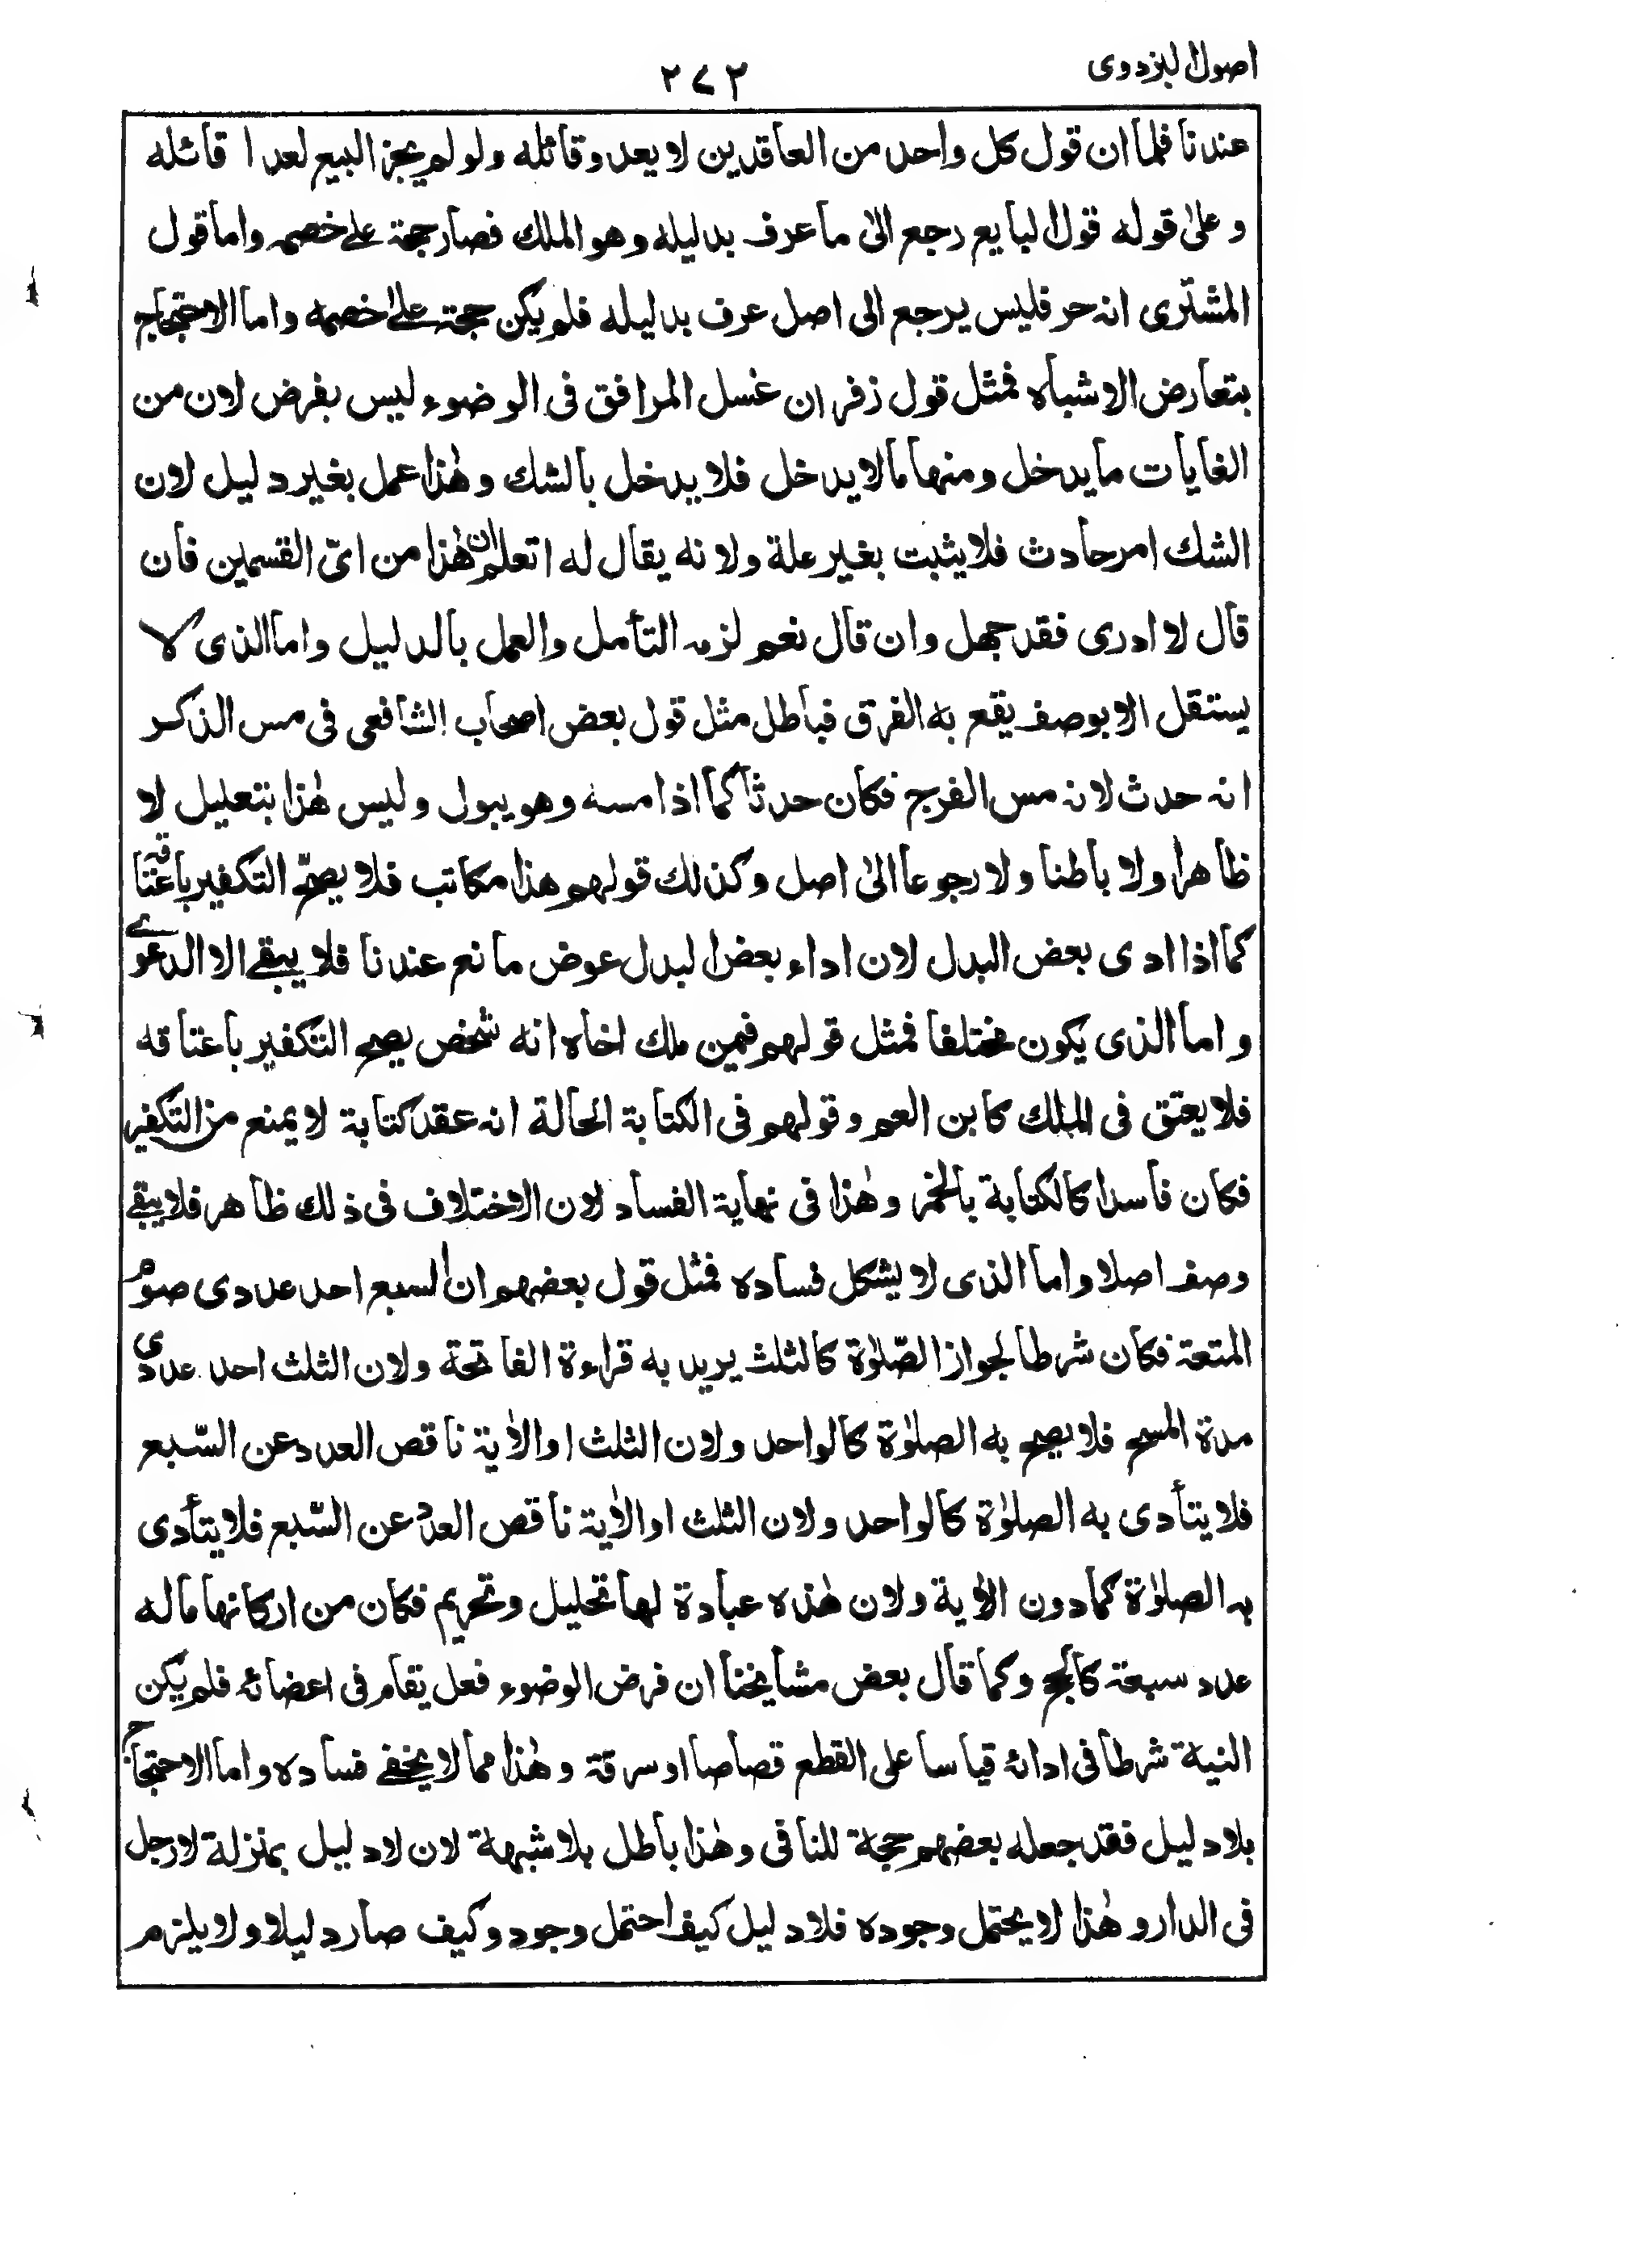 اصول البزدوی
۲۷۲
عندنا فلما ان قول کل واحد من العاقدین لا یعد وقائله ولو لم یجز البیع لعدا قائله
وعلیٰ قوله قول البایع رجع الیٰ ما عرف بدلیله وهو الملك فصار حجة علی خصمه واما قول
المشتری انه حر فلیس یرجع الی اصل عرف بدلیله فلم یکن حجة علیٰ خصمه واما الاحتجاج
بتعارض الاشباه فمثل قول زفر ان غسل المرافق فی الوضوء لیس بفرض لان من
الغایات ما یدخل ومنها ما لا یدخل فلا یدخل بالشك وهٰذا عمل بغیر دلیل لان
الشك امر حادث فلا یثبت بغیر علة ولانه یقال له اتعلم ان هٰذا من ایّ القسمین فان
قال لا ادری فقد جهل وان قال نعم لزمه التأمل والعمل بالدلیل واما الذی لا
یستقل الا بوصف یقع به الفرق فباطل مثل قول بعض اصحاب الشافعی فی مس الذکر
انه حدث لانه مس الفرج فکان حدثا کما اذا مسه وهو یبول ولیس هٰذا بتعلیل لا
ظاهرا ولا باطنا ولا رجوعا الیٰ اصل وکذلك قولهم هذا مکاتب فلا یصحّ التکفیر باعتاقه
کما اذا ادی بعض البدل لان اداء بعض البدل عوض مانع عندنا فلا یبقے الا الدعوے
واما الذی یکون مختلفا فمثل قولهم فیمن ملك اخاه انه شخص یصح التکفیر باعتاقه
فلا یعتق فی الملك کابن العم وقولهم فی الکتابة الحالة انه عقد کتابة لا یمنع من التکفیر
فکان فاسدا کالکتابة بالخمر وهٰذا فی نهایة الفساد لان الاختلاف فی ذلك ظاهر فلا یبقے
وصف اصلا واما الذی لا یشکل فساده فمثل قول بعضهم ان السبع احد عددی صوم
المتعة فکان شرطا لجواز الصّلوٰة کالثلث یرید به قراءة الفاتحة ولان الثلث احد عددی
مدة المسح فلا یصح به الصلوٰة کالواحد ولان الثلث او الاٰیة ناقص العدد عن السّبع
فلا یتأدی به الصلوٰة کالواحد ولان الثلث او الاٰیة ناقص العدد عن السّبع فلا یتأدی
به الصلوٰة کما دون الاٰیة ولان هٰذه عبادة لها تحلیل وتحریم فکان من ارکانها ما له
عدد سبعة کالحج وکما قال بعض مشایخنا ان فرض الوضوء فعل یقام فی اعضائه فلم یکن
النیة شرطا فی ادائه قیاسا علی القطع قصاصا او سرقة وهٰذا مما لا یخفے فساده واما الاحتجاج
بلا دلیل فقد جعله بعضهم حجة للنافی وهٰذا باطل بلا شبهة لان لا دلیل بمنزلة لا رجل
فی الدار وهٰذا لا یحتمل وجوده فلا دلیل کیف احتمل وجود وکیف صار دلیلا ولا یلزم